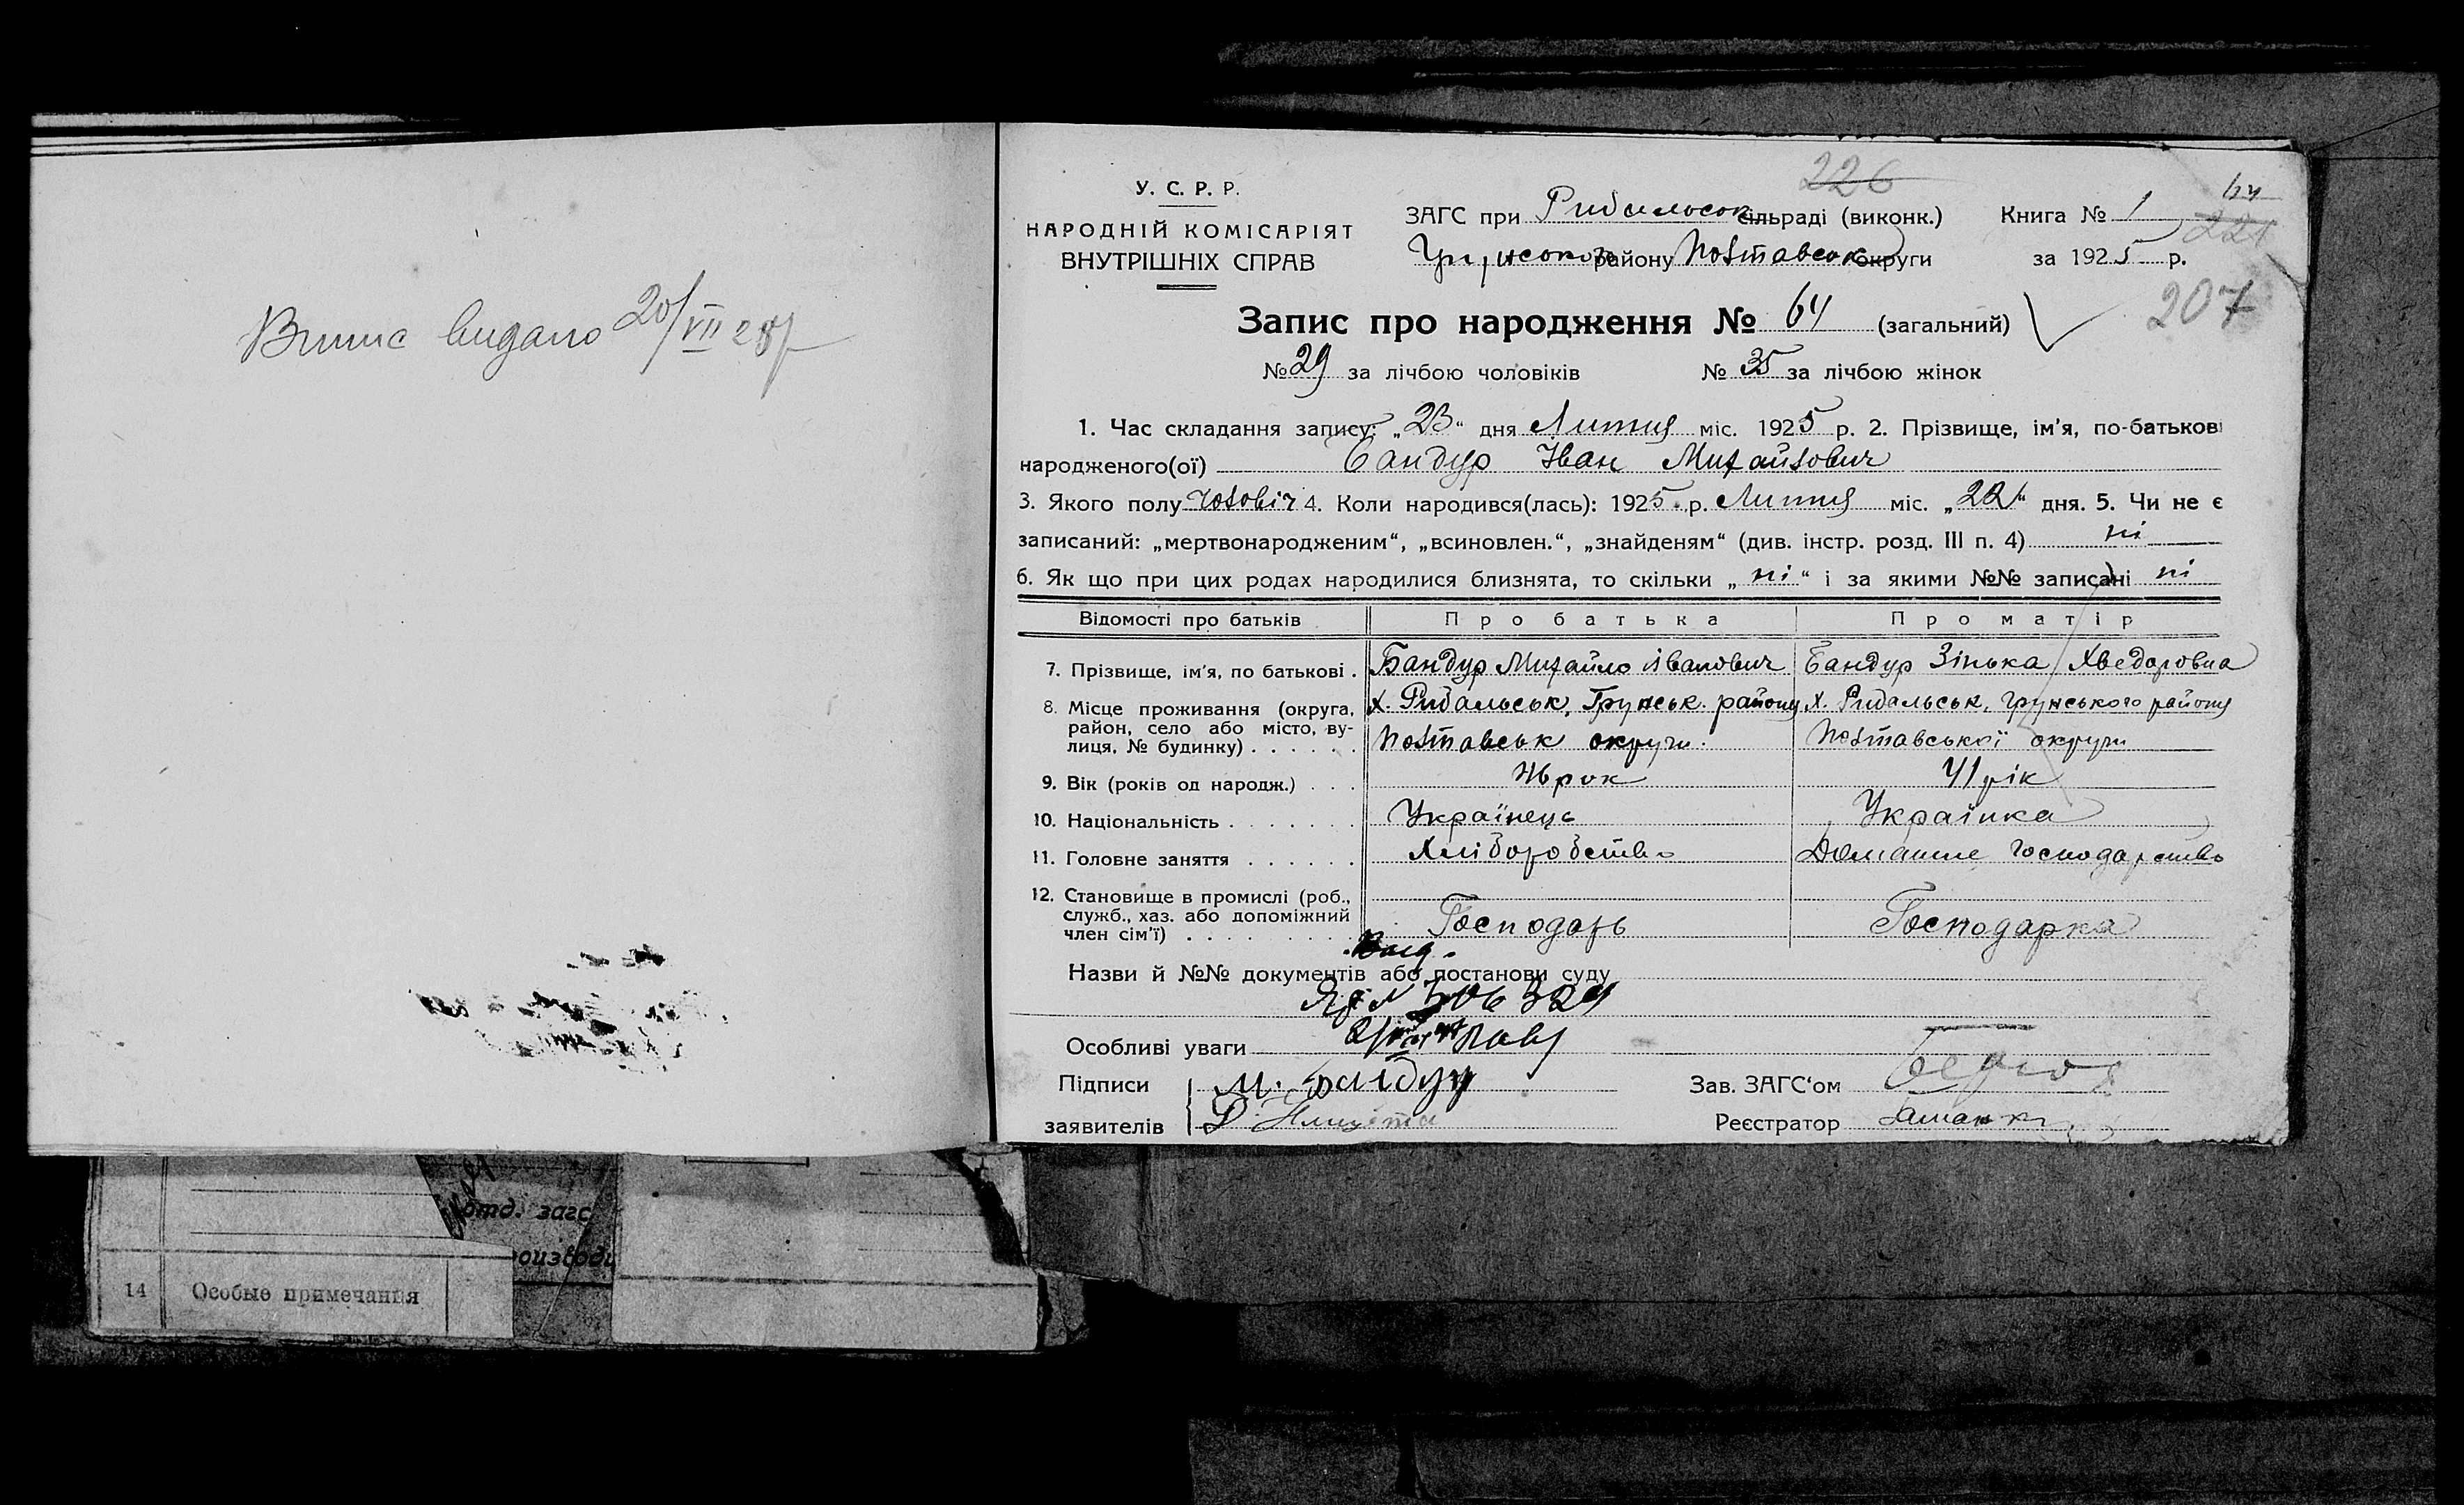 Випис видано 20/VII 28р
У. С. Р. Р.
НАРОДНІЙ КОМІСАРІЯТ
ВНУТРІШНІХ СПРАВ
226
ЗАГС при Рибальськ сільраді (виконк.)
Грунського району Полтавськ округи
Книга № 1
64
221
за 1925 р.
207
Запис про народження № 64 (загальний)
№ 29 за лічбою чоловіків № 35 за лічбою жінок
1. Час складання запису: „23“ дня Лютня міс. 1925 р. 2. Прізвище, ім'я, по-батькові
народженого(ої) Бандур Іван Михайлович
3. Якого полу чоловіч 4. Коли народився(лась): 1925 р. Лютня міс. „22“ дня. 5. Чи не є
записаний: „мертвонародженим“, „всиновлен.“, „знайденям“ (див. інстр. розд. III п. 4) ні
6. Як що при цих родах народилися близнята, то скільки „ні“ і за якими №№ записані ні
Відомості про батьків Про батька Про матір
7. Прізвище, ім'я, по батькові . Бандур Михайло Іванович Бандур Зінька Хведоровна
8. Місце проживання (округа, х. Рибальськ, Грунськ. району х. Рибальськ, Грунського району
район, село або місто, ву-
лиця, № будинку) . . . . . . Полтавськ округи. Полтавської округи
9. Вік (років од народж.) . . . 46 рок 41 рік
10. Національність . . . . . . . Українець Українка
11. Головне заняття . . . . . . Хліборобство Домашне господарство
12. Становище в промислі (роб.,
служб., хаз. або допоміжний
член сім'ї) . . . . . . . . . Господарь Господарка
Назви й №№ документів або постанови суду
№ 506324
Особливі уваги
Підписи М. Бандур Зав. ЗАГС‘ом
заявителів Реєстратор
отд. загс
14 Особые примечания